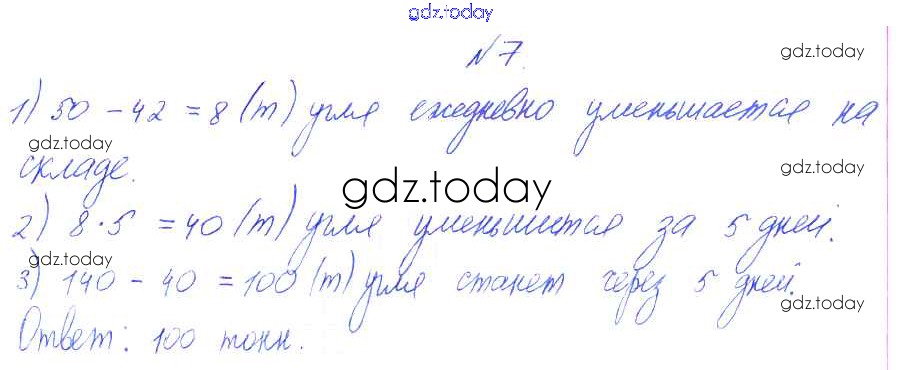 gdz.today
№ 7.
gdz.today
1) 50 - 42 = 8 (т) угля ежедневно уменьшается на
gdz.today
складе.
gdz.today
gdz.today
2) 8 · 5 = 40 (т) угля уменьшится за 5 дней.
gdz.today
gdz.today
3) 140 - 40 = 100 (т) угля станет через 5 дней.
gdz.today
Ответ: 100 тонн.